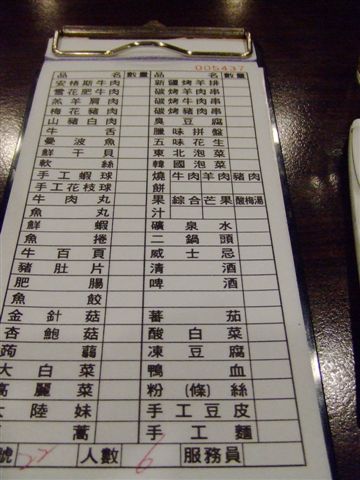 005437
品名 數量 品名 數量
安格斯牛肉 新疆烤羊排
雪花肥牛肉 碳烤羊肉串
羔羊肩肉 碳烤牛肉串
梅花豬肉 碳烤豬肉串
山豬白肉 臭豆腐
牛舌 臘味拼盤
曼波魚 五味花生
鮮干貝 東北泡菜
軟絲 韓國泡菜
手工蝦球 燒餅 牛肉 羊肉 豬肉
手工花枝球
牛肉丸 果汁 綜合 芒果 酸梅湯
魚丸
鮮蝦 礦泉水
魚捲 二鍋頭
牛百頁 威士忌
豬肚片 清酒
肥腸 啤酒
魚餃
金針菇 蕃茄
杏鮑菇 酸白菜
蒟蒻 凍豆腐
大白菜 鴨血
高麗菜 粉(條)絲
大陸妹 手工豆皮
蒿 手工麵
號 22 人數 6 服務員